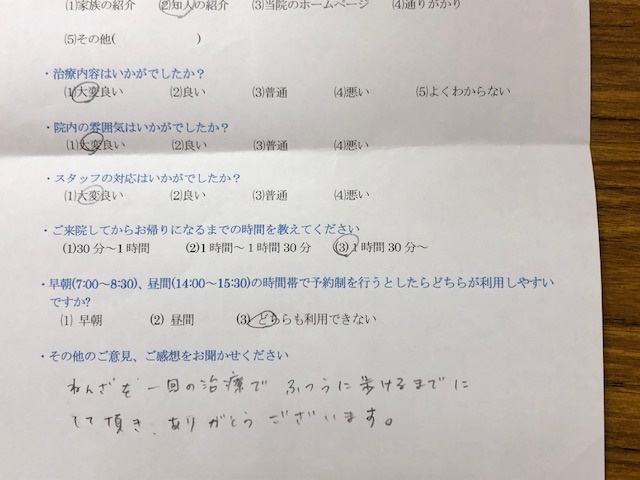 (1)家族の紹介 (2)知人の紹介 (3)当院のホームページ (4)通りがかり
(5)その他( )
・治療内容はいかがでしたか？
(1)大変良い (2)良い (3)普通 (4)悪い (5)よくわからない
・院内の雰囲気はいかがでしたか？
(1)大変良い (2)良い (3)普通 (4)悪い
・スタッフの対応はいかがでしたか？
(1)大変良い (2)良い (3)普通 (4)悪い
・ご来院してからお帰りになるまでの時間を教えてください
(1)30分～1時間 (2)1時間～1時間30分 (3)1時間30分～
・早朝(7:00～8:30)、昼間(14:00～15:30)の時間帯で予約制を行うとしたらどちらが利用しやすい
ですか?
(1) 早朝 (2) 昼間 (3) どちらも利用できない
・その他のご意見、ご感想をお聞かせください
ねんざを一回の治療で ふつうに歩けるまでに
して頂き、ありがとうございます。